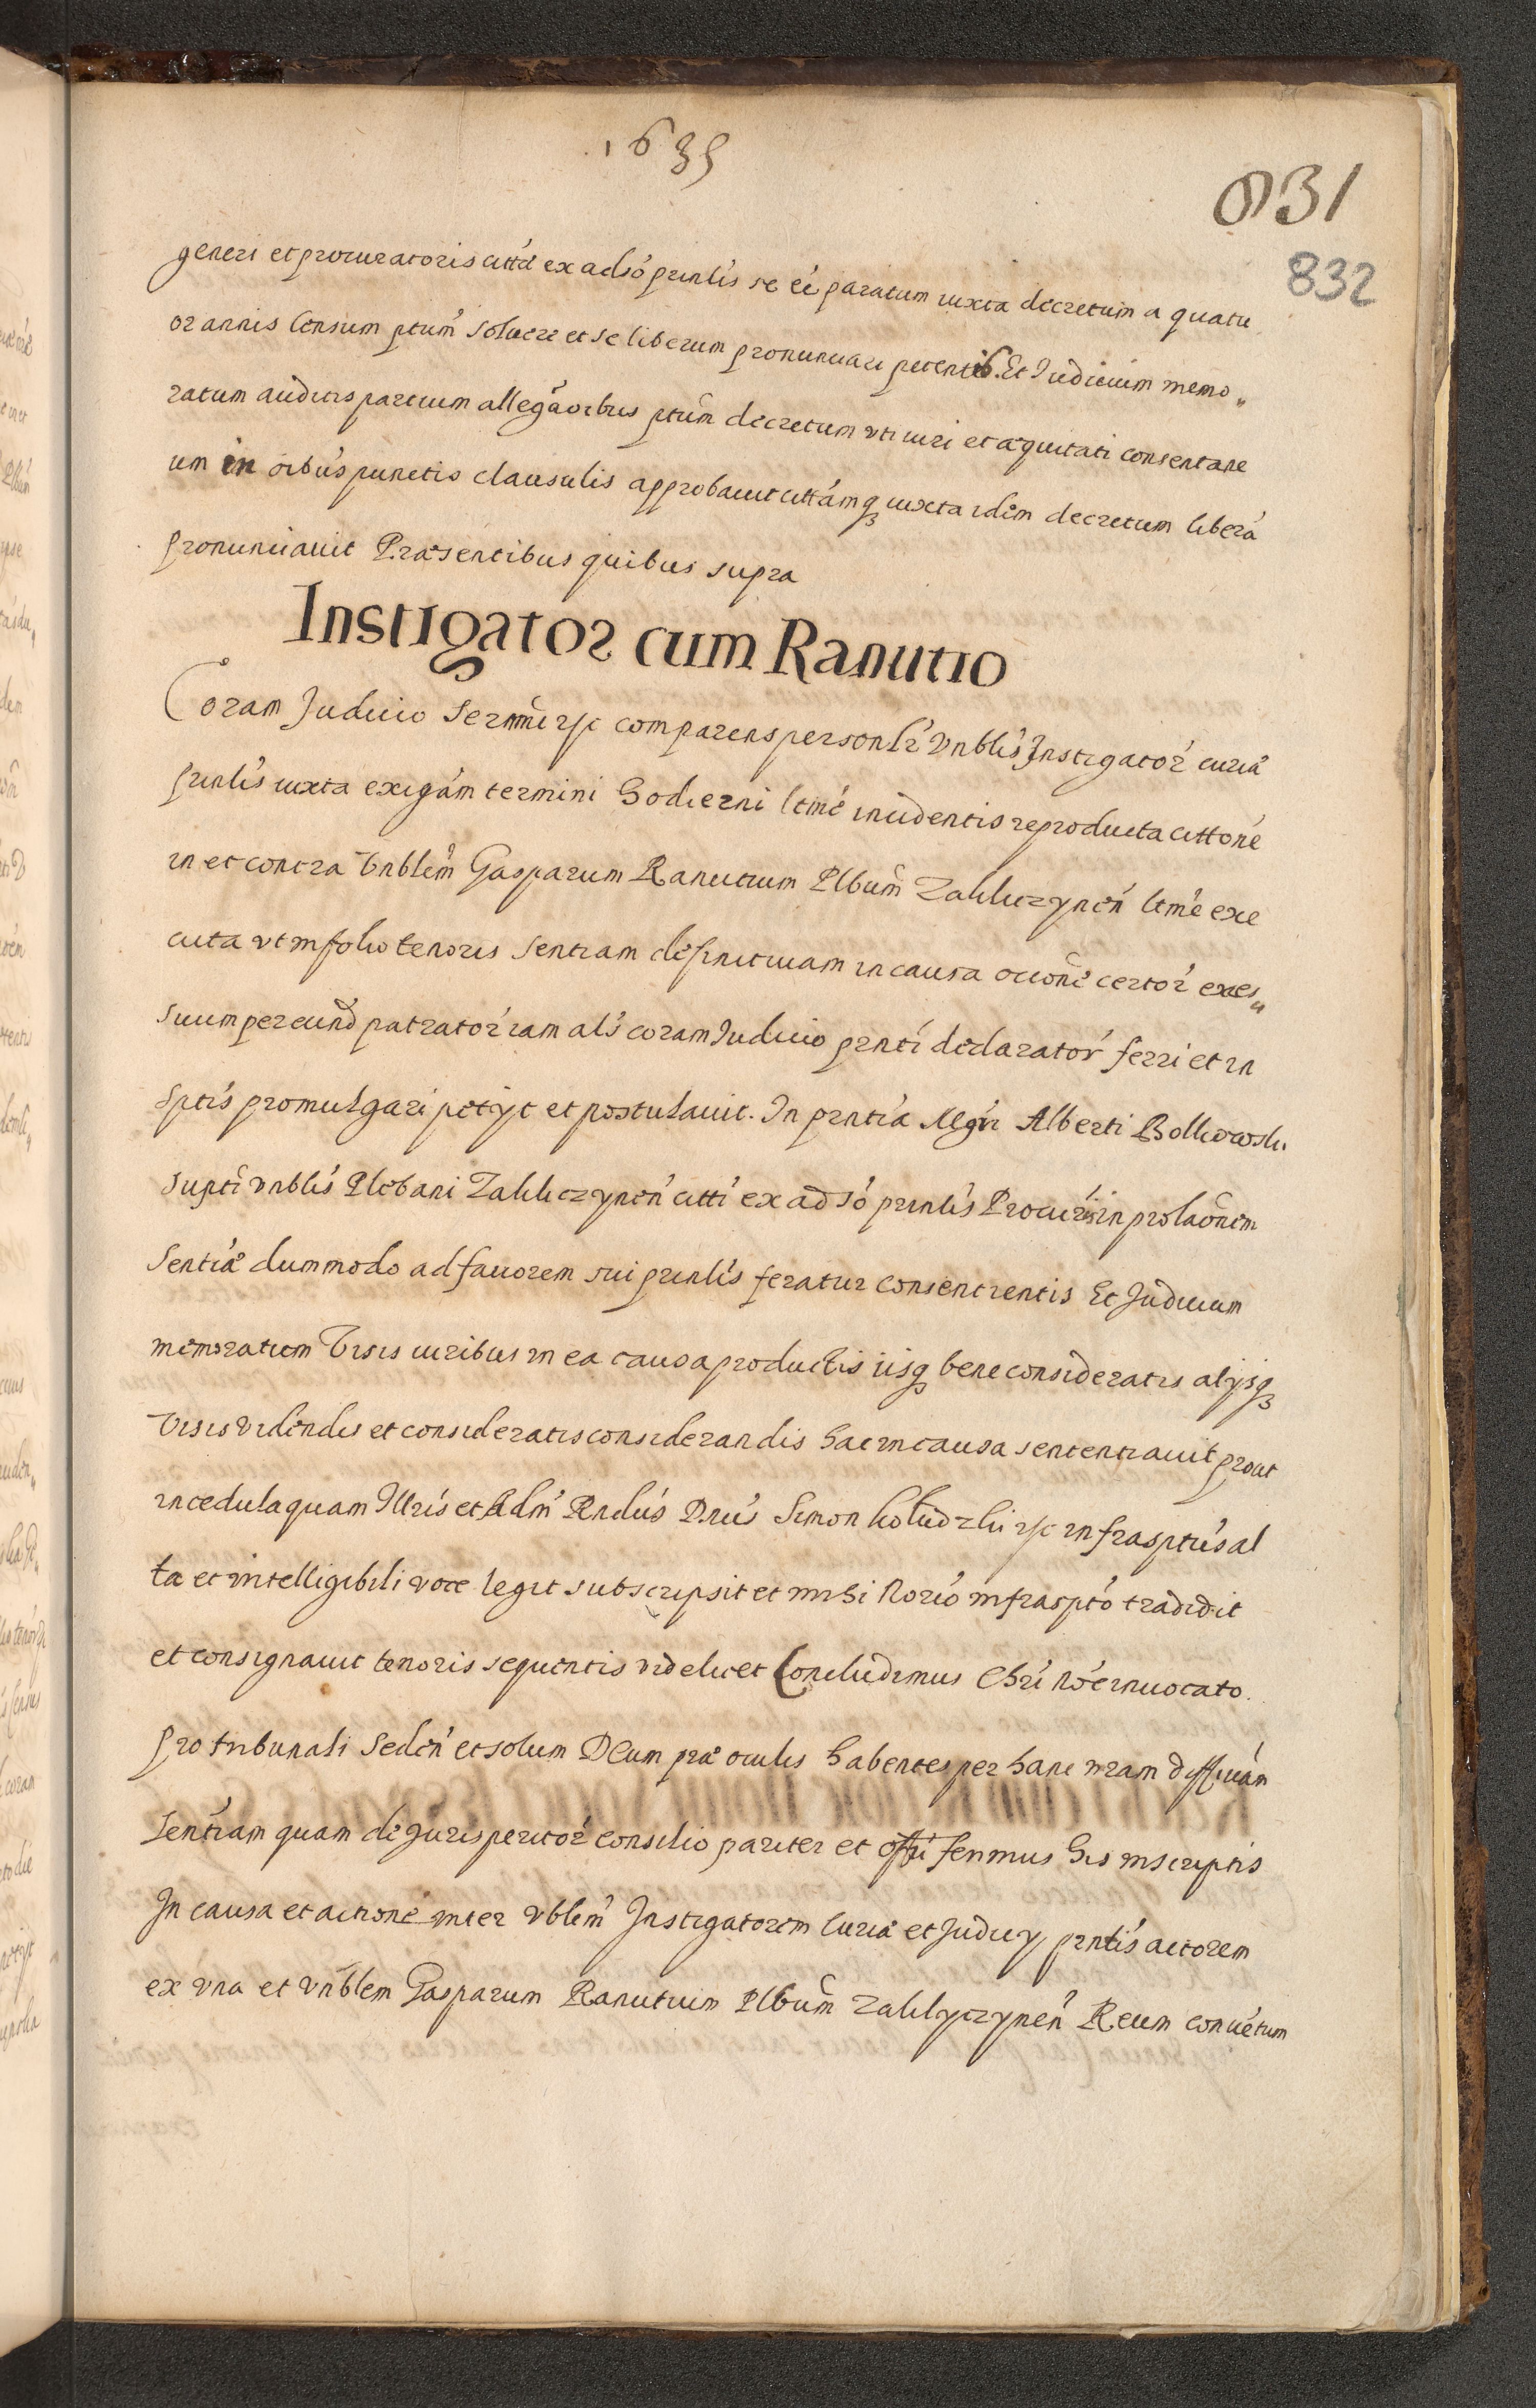 1635
831
832
generi et procuratoris cittã ex adsó prinlis se eé paratum iuxta decretum a quatu
or annis Censum ptum̃ soluere et se liberum pronunciari petentis. Et Iudicium memo„
ratum auditis partium allegãoibus ptum̃ decretum vti iuri et æquitati consentane
um in oibús punctis clausulis approbauit cittámq iuxta idem decretum liberá
pronunciauit Præsentibus quibus supra
Instigator cum Ranutio
Coram Judicio Sermi etc comparens personlr Vnblis Instigator curiæ
prinlis iuxta exigám termini hodierni ltmé incidentis reproducta cittoné
in et contra Vnblem̃ Gasparum Ranutium Plbum̃ Zakliczynen̄ ltmé exe
cuta vt in folio tenoris sentiam definitiuam in causa oc̃ioné certor̃ exces„
suum per eund̃ patrator̃ iam als coram Iudicio prnti declarator̃ ferri et in
sptis promulgari petijt et postulauit. In prntiá Mgri Alberti Bolkowski
supti vnblis Plebani Zakliczynen̄ citti ex adsó prinlis Procuris in prolaõnem
Sentiæ dummodo ad fauorem sui prinlis feratur consentientis Et Judicium
memoratum Visis iuribus in ea causa productis iisq bene consideratis alijsq
Visis videndis et consideratis considerandis hac in causa sententiauit prout
in cedula quam Illris et Adm̃ Rndús Dnús Simon Kołudzki etc infrasptús al
ta et intelligibili voce legit subscripsit et mihi Norió infrasptó tradidit
et consignauit tenoris sequentis videlicet Concludimus Chri Nóe inuocato.
Pro tribunali Seden̄ et solum Deum præ oculis habentes per hanc nram diffiuám
Sentiam quam de Jurisperitor̃ consilio pariter et assu ferimus his inscriptis
In causa et actioné inter vblem̃ Instigatorem Curiæ et Judicij prntis actorem
ex vna et vnblem Gasparum Ranutium Plbum̃ Zaklyczynen̄ Reum conuétum